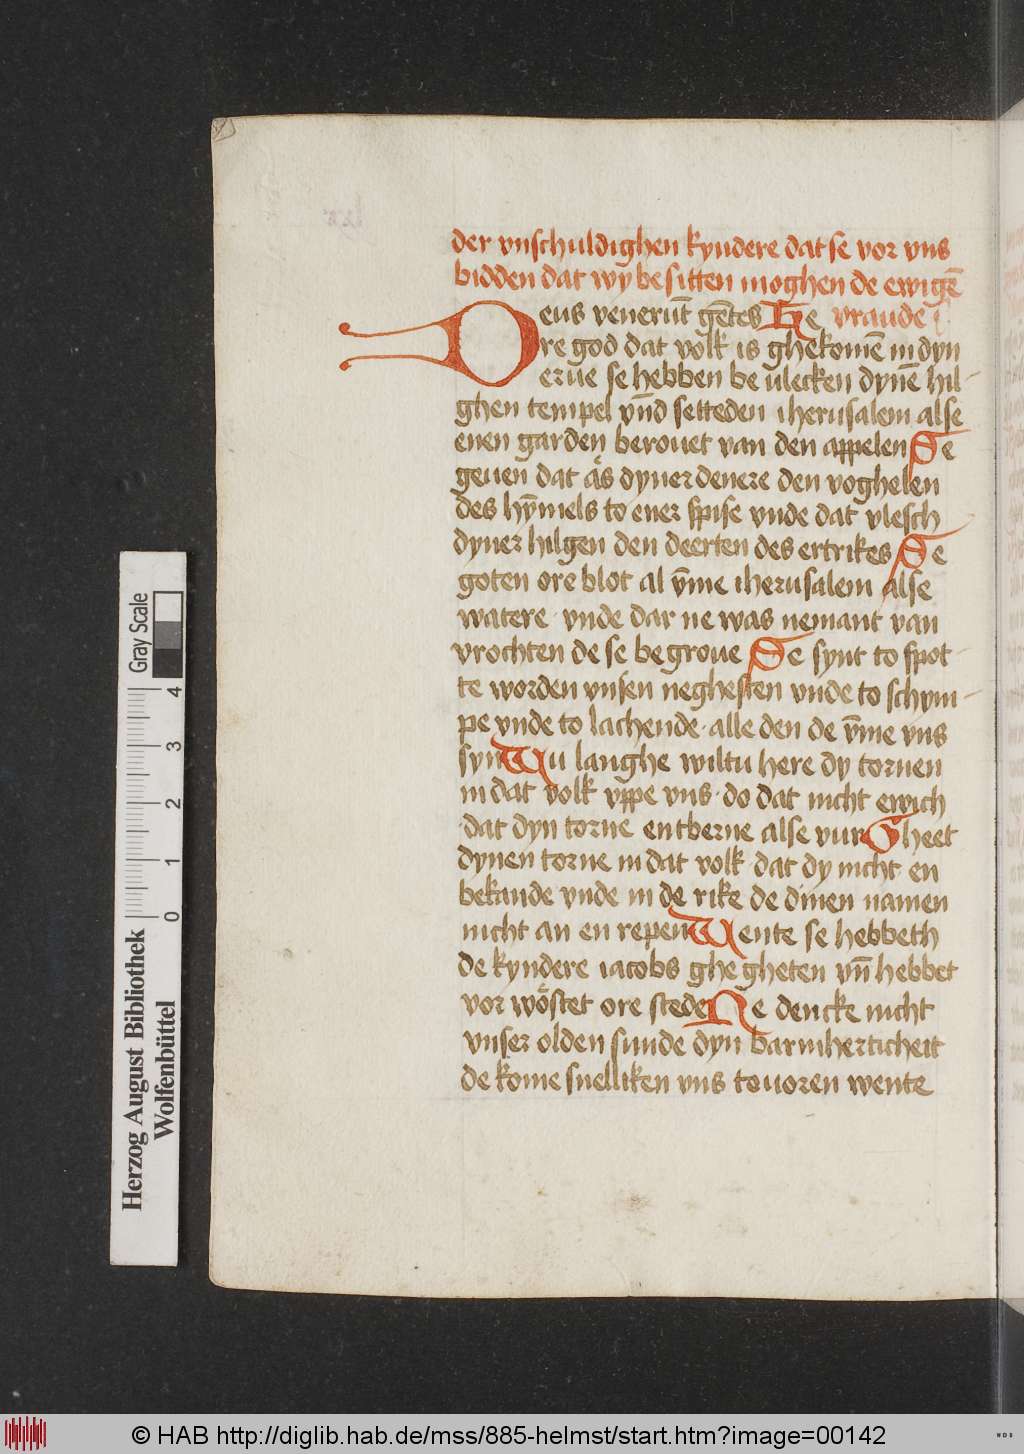 der vnschuldighen kyndere dat se vor vns
bidden dat wy besitten moghen de ewigē
Deus venerūt gētes He vraude
re god dat volk is ghekomē in dyn
erue se hebben be vlecken dynē hil-
ghen tempel vn̄d setteden iherusalem alse
enen garden berouet van den appelen Se
geuen dat aͤs dyner denere den voghelen
des hȳmels to ener spise vnde dat vlesch
dyner hilgen den deerten des ertrikes Se
goten ore blot al v̄me iherusalem alse
watere · vnde dar ne was nemant van
vrochten de se begroue Se synt to spot-
te worden vnsen neghesten vnde to schym-
pe vnde to lachende · alle den de v̄me vns
syn Wu langhe wiltu here dy tornen
in dat volk vppe vns · do dat nicht ewich
dat dyn torne entberne alse vur Gheet
dynen torne in dat volk dat dy nicht en
bekande vnde in de rike de dinen namen
nicht an en repen Wente se hebbeth
de kyndere iacobs ghe gheten vn̄ hebbet
vor woͤstet ore stede Ne dencke nicht
vnser olden sunde dyn barmherticheit
de kome snelliken vns touoren wente
Gray Scale
4 3 2 1 0
Herzog August Bibliothek
Wolfenbüttel
© HAB http://diglib.hab.de/mss/885-helmst/start.htm?image=00142